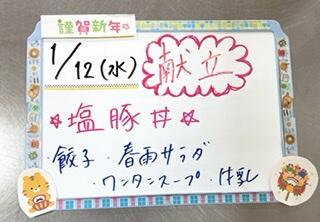 謹賀新年
1/12(水)
献立
☆塩豚丼☆
・餃子・春雨サラダ
・ワンタンスープ・牛乳